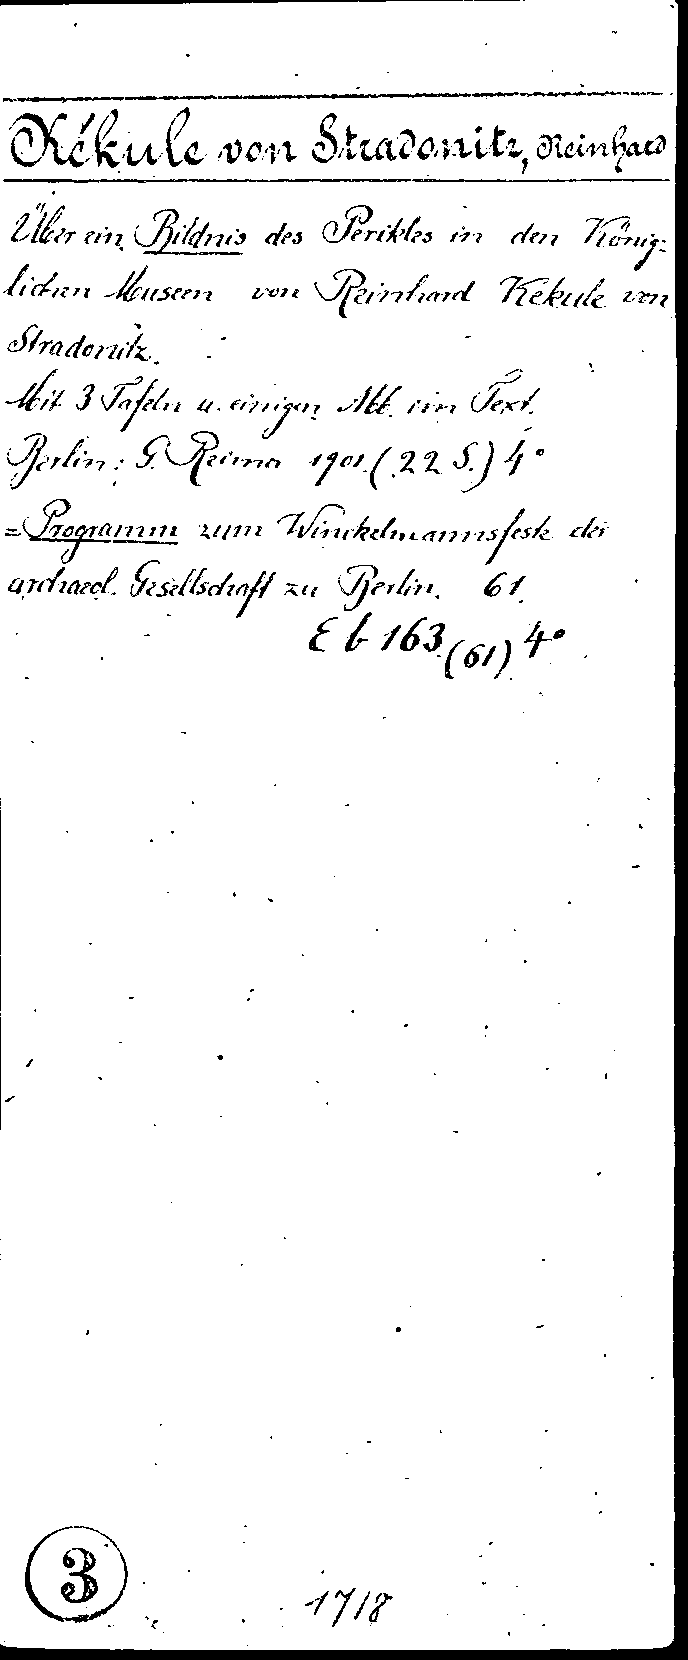 Kékule von Stradonitz, Reinhard
Über ein Bildnis des Perikles in den König-
lichen Museen von Reinhard Kekule von
Stradonitz.
Mit 3 Tafeln u. einigen Abb. im Text.
Berlin: G. Reimer 1901. (22 S.) 4°
= Programm zum Winckelmannsfeste der
archaeol. Gesellschaft zu Berlin. 61.
E b 163 (61) 4°
3
1718